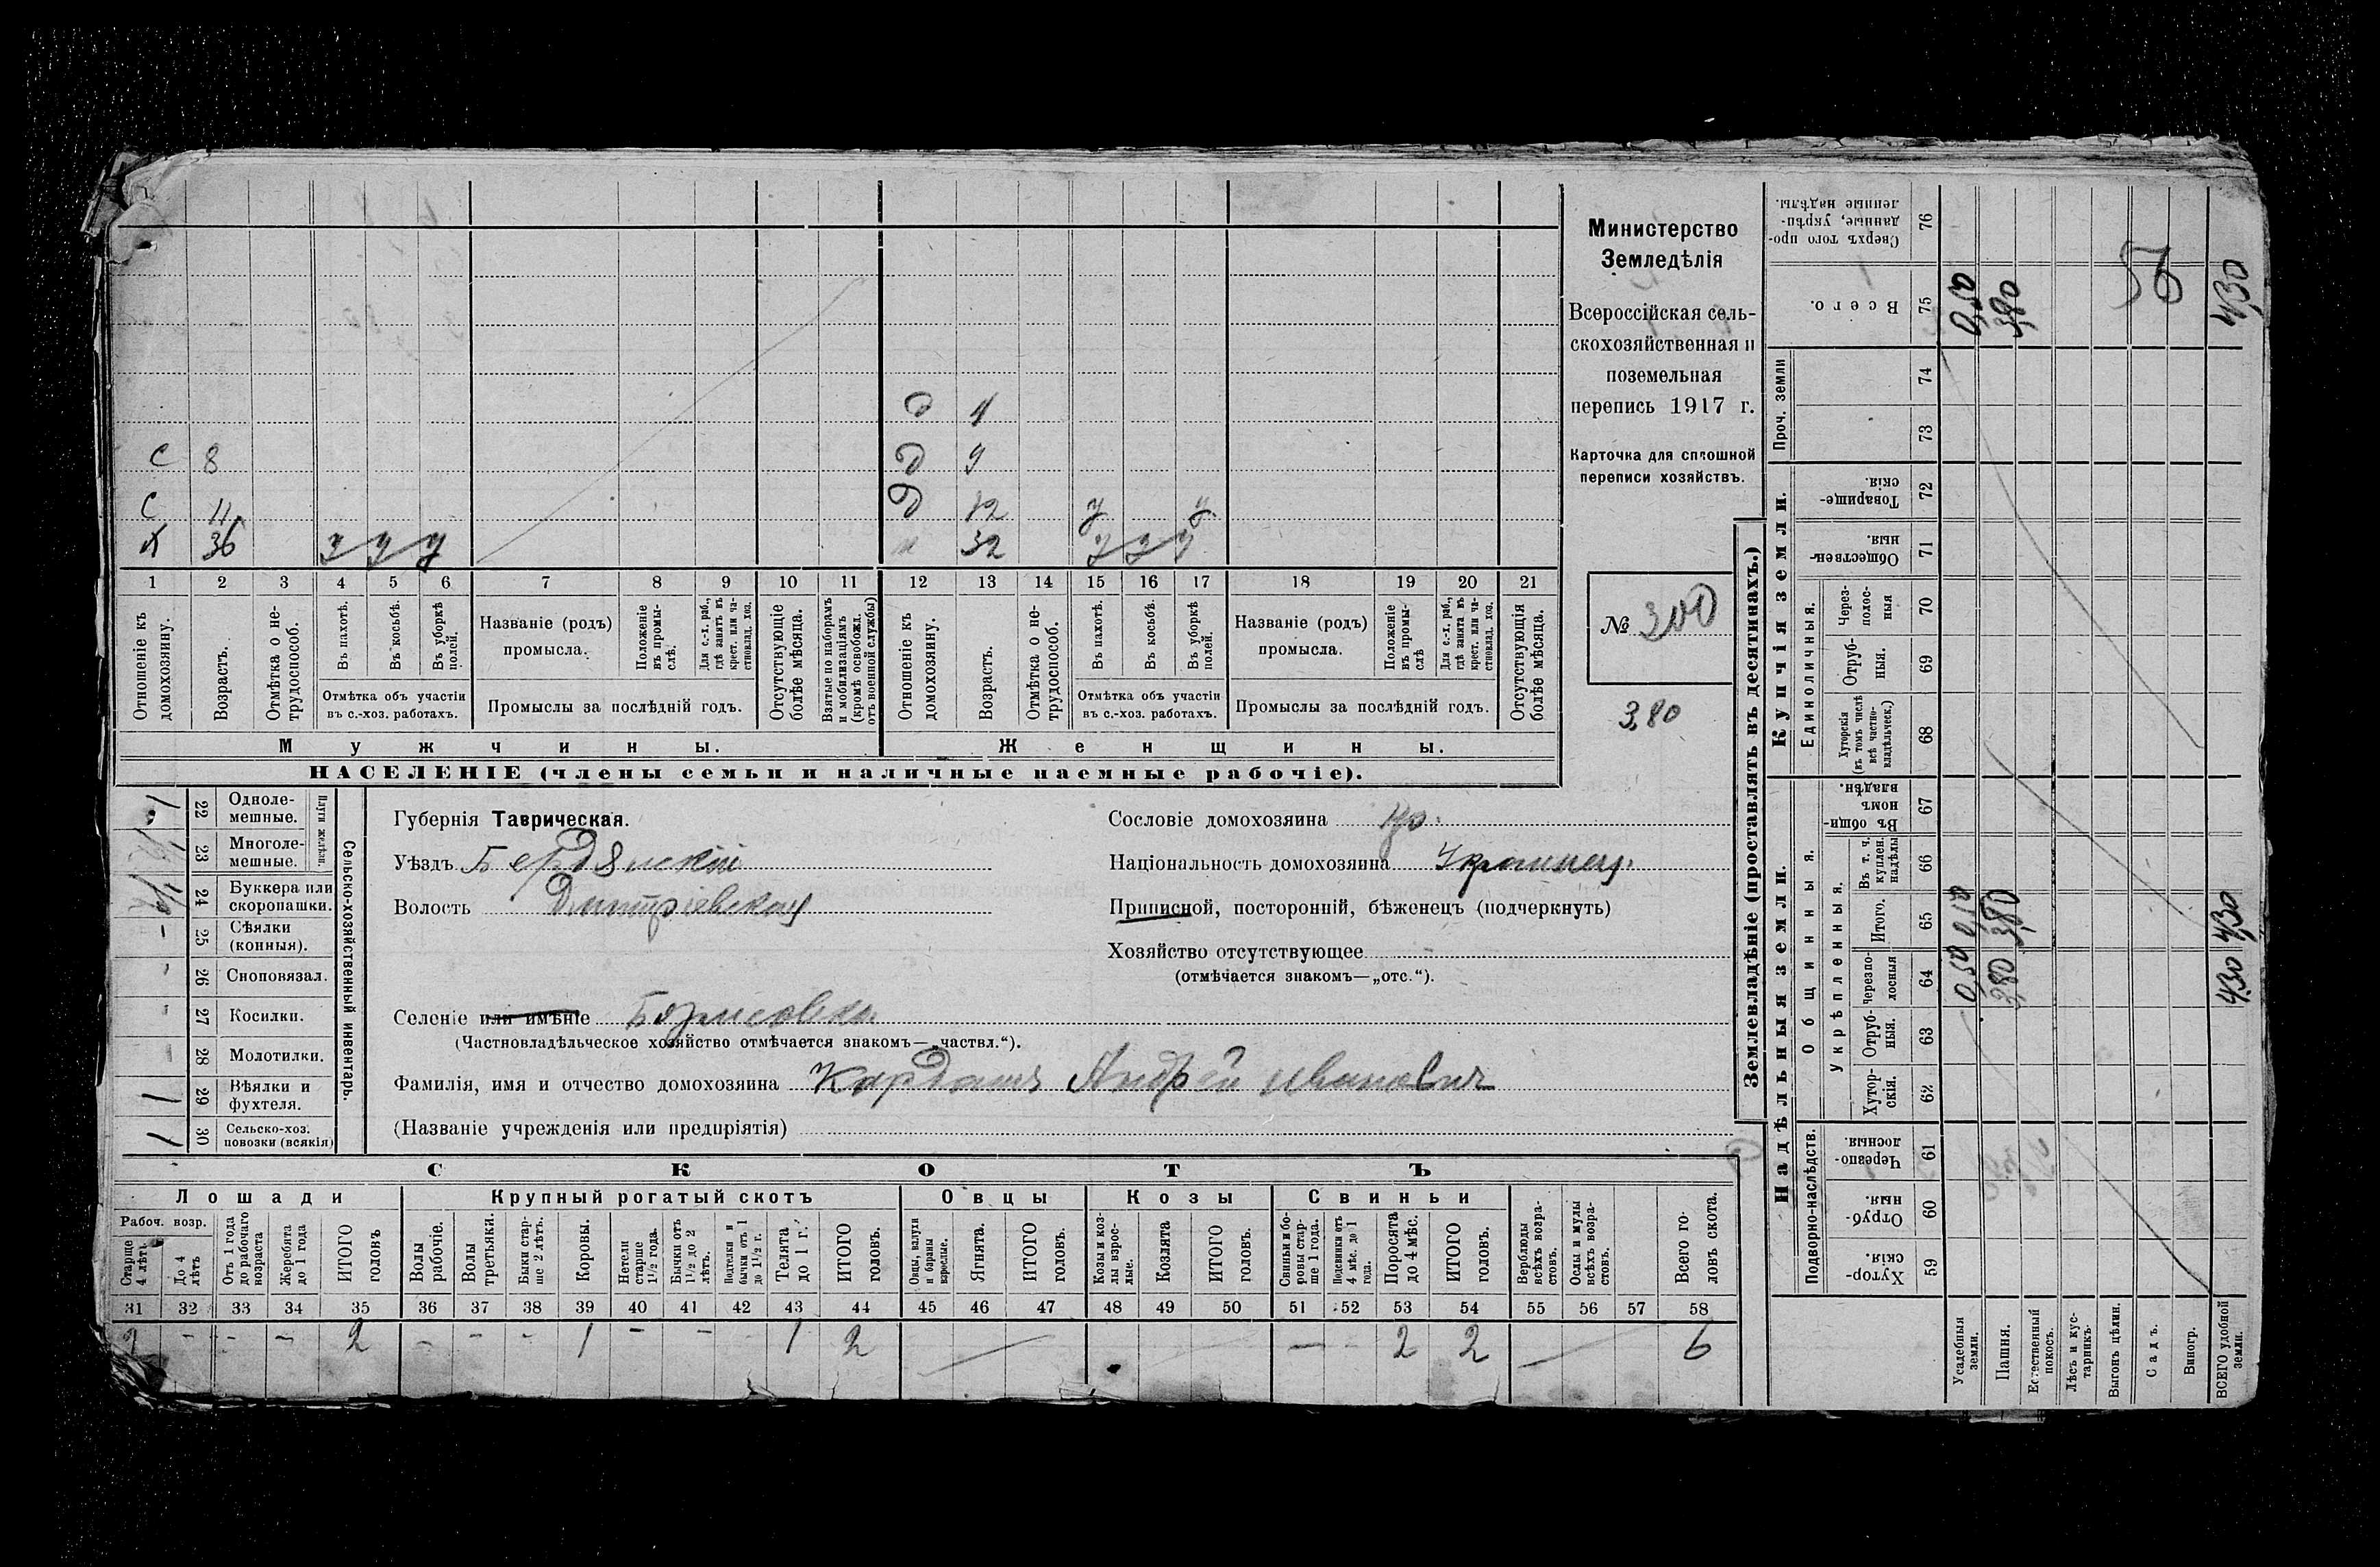 Министерство
Земледѣлія
Всероссійская сель-
скохозяйственная и
поземельная
перепись 1917 г.
Карточка для сплошной
переписи хозяйствъ.
№ 300
3,80
д 4
С 8 д 9
С 11 д 12 у у
Х 36 у у у 32 у у у
1 2 3 4 5 6 7 8 9 10 11 12 13 14 15 16 17 18 19 20 21
Отношеніе къ домохозяину.
Возрастъ.
Отмѣтка о не-трудоспособ.
Въ пахотѣ.
Въ косьбѣ.
Въ уборкѣ полей.
Отмѣтка объ участіи
въ с.-хоз. работахъ.
Названіе (родъ)
промысла.
Положеніе въ промы-слѣ.
Для с.-х. раб., гдѣ занятъ въ крест. или ча-стновлад. хоз.
Промыслы за послѣдній годъ.
Отсутствующіе болѣе мѣсяца.
Взятые по наборамъ и мобилизаціямъ (кромѣ освобожд. отъ военной службы)
Отношеніе къ домохозяину.
Возрастъ.
Отмѣтка о не-трудоспособ.
Въ пахотѣ.
Въ косьбѣ.
Въ уборкѣ полей.
Отмѣтка объ участіи
въ с.-хоз. работахъ.
Названіе (родъ)
промысла.
Положеніе въ промы-слѣ
Для с.-х. раб., гдѣ занята въ крест. или ча-стновлад. хоз.
Промыслы за послѣдній годъ.
Отсутствующія болѣе мѣсяца.
Мужчины. Женщины.
НАСЕЛЕНІЕ (члены семьи и наличные наемные рабочіе).
Сельско-хозяйственный инвентарь.
Плуги желѣзн.
1 22 Одноле-мешные.
23 Многоле-мешные.
24 Буккера или скоропашки.
- 25 Сѣялки (конныя).
26 Сноповязал.
27 Косилки.
28 Молотилки.
1 29 Вѣялки и фухтеля.
1 30 Сельско-хоз. повозки (всякія)
Губернія Таврическая.
Уѣздъ Бердянскій
Волость Дмитріевская
Сословіе домохозяина
Національность домохозяина Украинец.
Приписной, посторонній, бѣженецъ (подчеркнуть)
Хозяйство отсутствующее -
(отмѣчается знакомъ—„отс.“).
Селеніе или имѣніе Борисовка
(Частновладѣльческое хозяйство отмѣчается знакомъ—„частвл.“).
Фамилія, имя и отчество домохозяина Кардашъ Андрей Ивановичъ
(Названіе учрежденія или предпріятія)
СКОТЪ
Лошади Крупный рогатый скотъ Овцы Козы Свиньи
Рабоч. возр.
Старше 4 лѣтъ.
До 4 лѣтъ
Отъ 1 года до рабочаго возраста
Жеребята до 1 года
ИТОГО головъ
Волы рабочіе.
Волы третьяки.
Быки стар-ше 2 лѣтъ.
Коровы.
Нетели старше 1½ года.
Бычки отъ 1½ до 2 лѣтъ.
Подтелки и бычки отъ 1 до 1½ г.
Телята до 1 г.
ИТОГО головъ.
Овцы, валухи и бараны взрослые.
Ягнята.
ИТОГО головъ.
Козы и коз-лы взрос-лые.
Козлята
ИТОГО головъ.
Свиньи и бо-ровы стар-ше 1 года.
Подсвинки отъ 4 мѣс. до 1 года.
Поросята до 4 мѣс.
ИТОГО головъ.
Верблюды всѣхъ возра-стовъ.
Ослы и мулы всѣхъ возра-стовъ.
Всего го-ловъ скота.
31 32 33 34 35 36 37 38 39 40 41 42 43 44 45 46 47 48 49 50 51 52 53 54 55 56 57 58
2 - - - 2 - - - 1 - - - 1 2 — - 2 2 6
Землевладѣніе (проставлять въ десятинахъ.)
Надѣльныя земли. Купчія земли. Проч. земли
Подворно-наслѣдств.
Общинныя.
Укрѣпленныя.
Единоличныя.
Сверхъ того про-данные, укрѣп-ленные надѣлы. 76
Всего. 75 0,50 3,80 56 4,30
74
73
Товарище-скія. 72
Обществен-ныя. 71
Через-полос-ныя 70
Отруб-ныя. 69
Хуторскія (въ томъ числѣ всѣ частно-владѣльческ.) 68
Въ общи-номъ владѣн. 67
Въ т. ч. куплен. надѣлы 66
Итого. 65 0,50 3,80 4,30
Черезпо-лосныя 64 0,50 3,80 4,30
Отруб-ныя. 63
Хутор-скія. 62
Черезпо-лосныя. 61
Отруб-ныя. 60
Хутор-скія. 59
Усадебныя земли.
Пашня.
Естественный покосъ.
Лѣсъ и кус-тарникъ.
Выгонъ цѣлин.
Садъ.
Виногр.
ВСЕГО удобной земли.